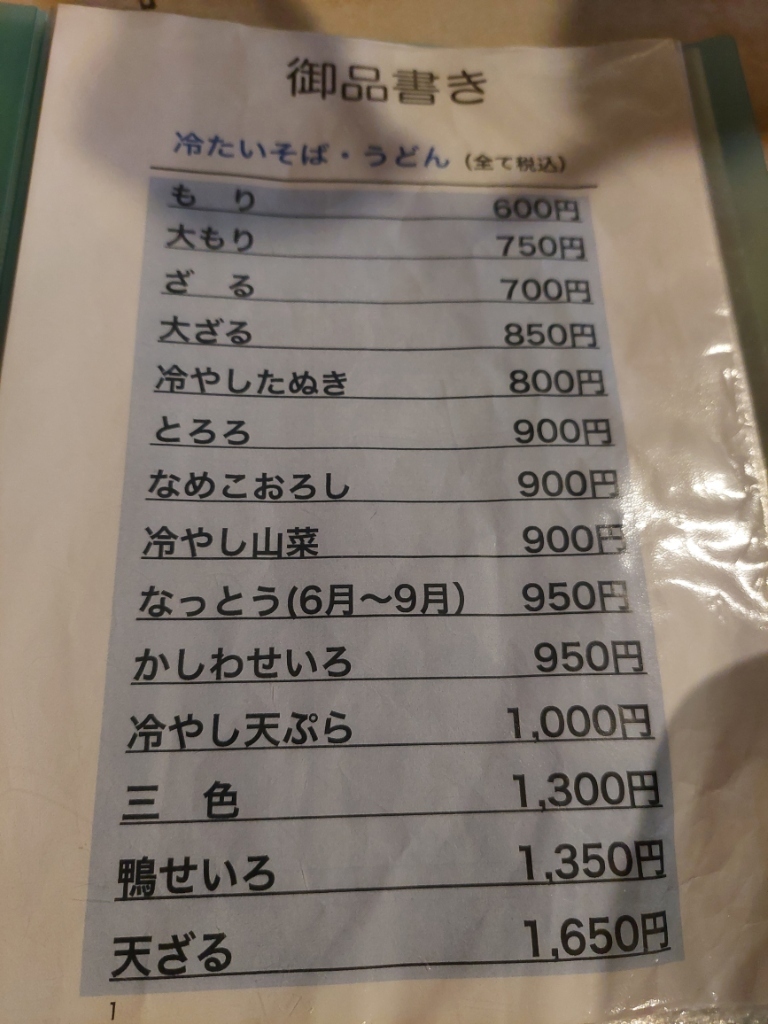 御品書き
冷たいそば・うどん（全て税込）
もり 600円
大もり 750円
ざる 700円
大ざる 850円
冷やしたぬき 800円
とろろ 900円
なめこおろし 900円
冷やし山菜 900円
なっとう(6月〜9月） 950円
かしわせいろ 950円
冷やし天ぷら 1,000円
三色 1,300円
鴨せいろ 1,350円
天ざる 1,650円
1